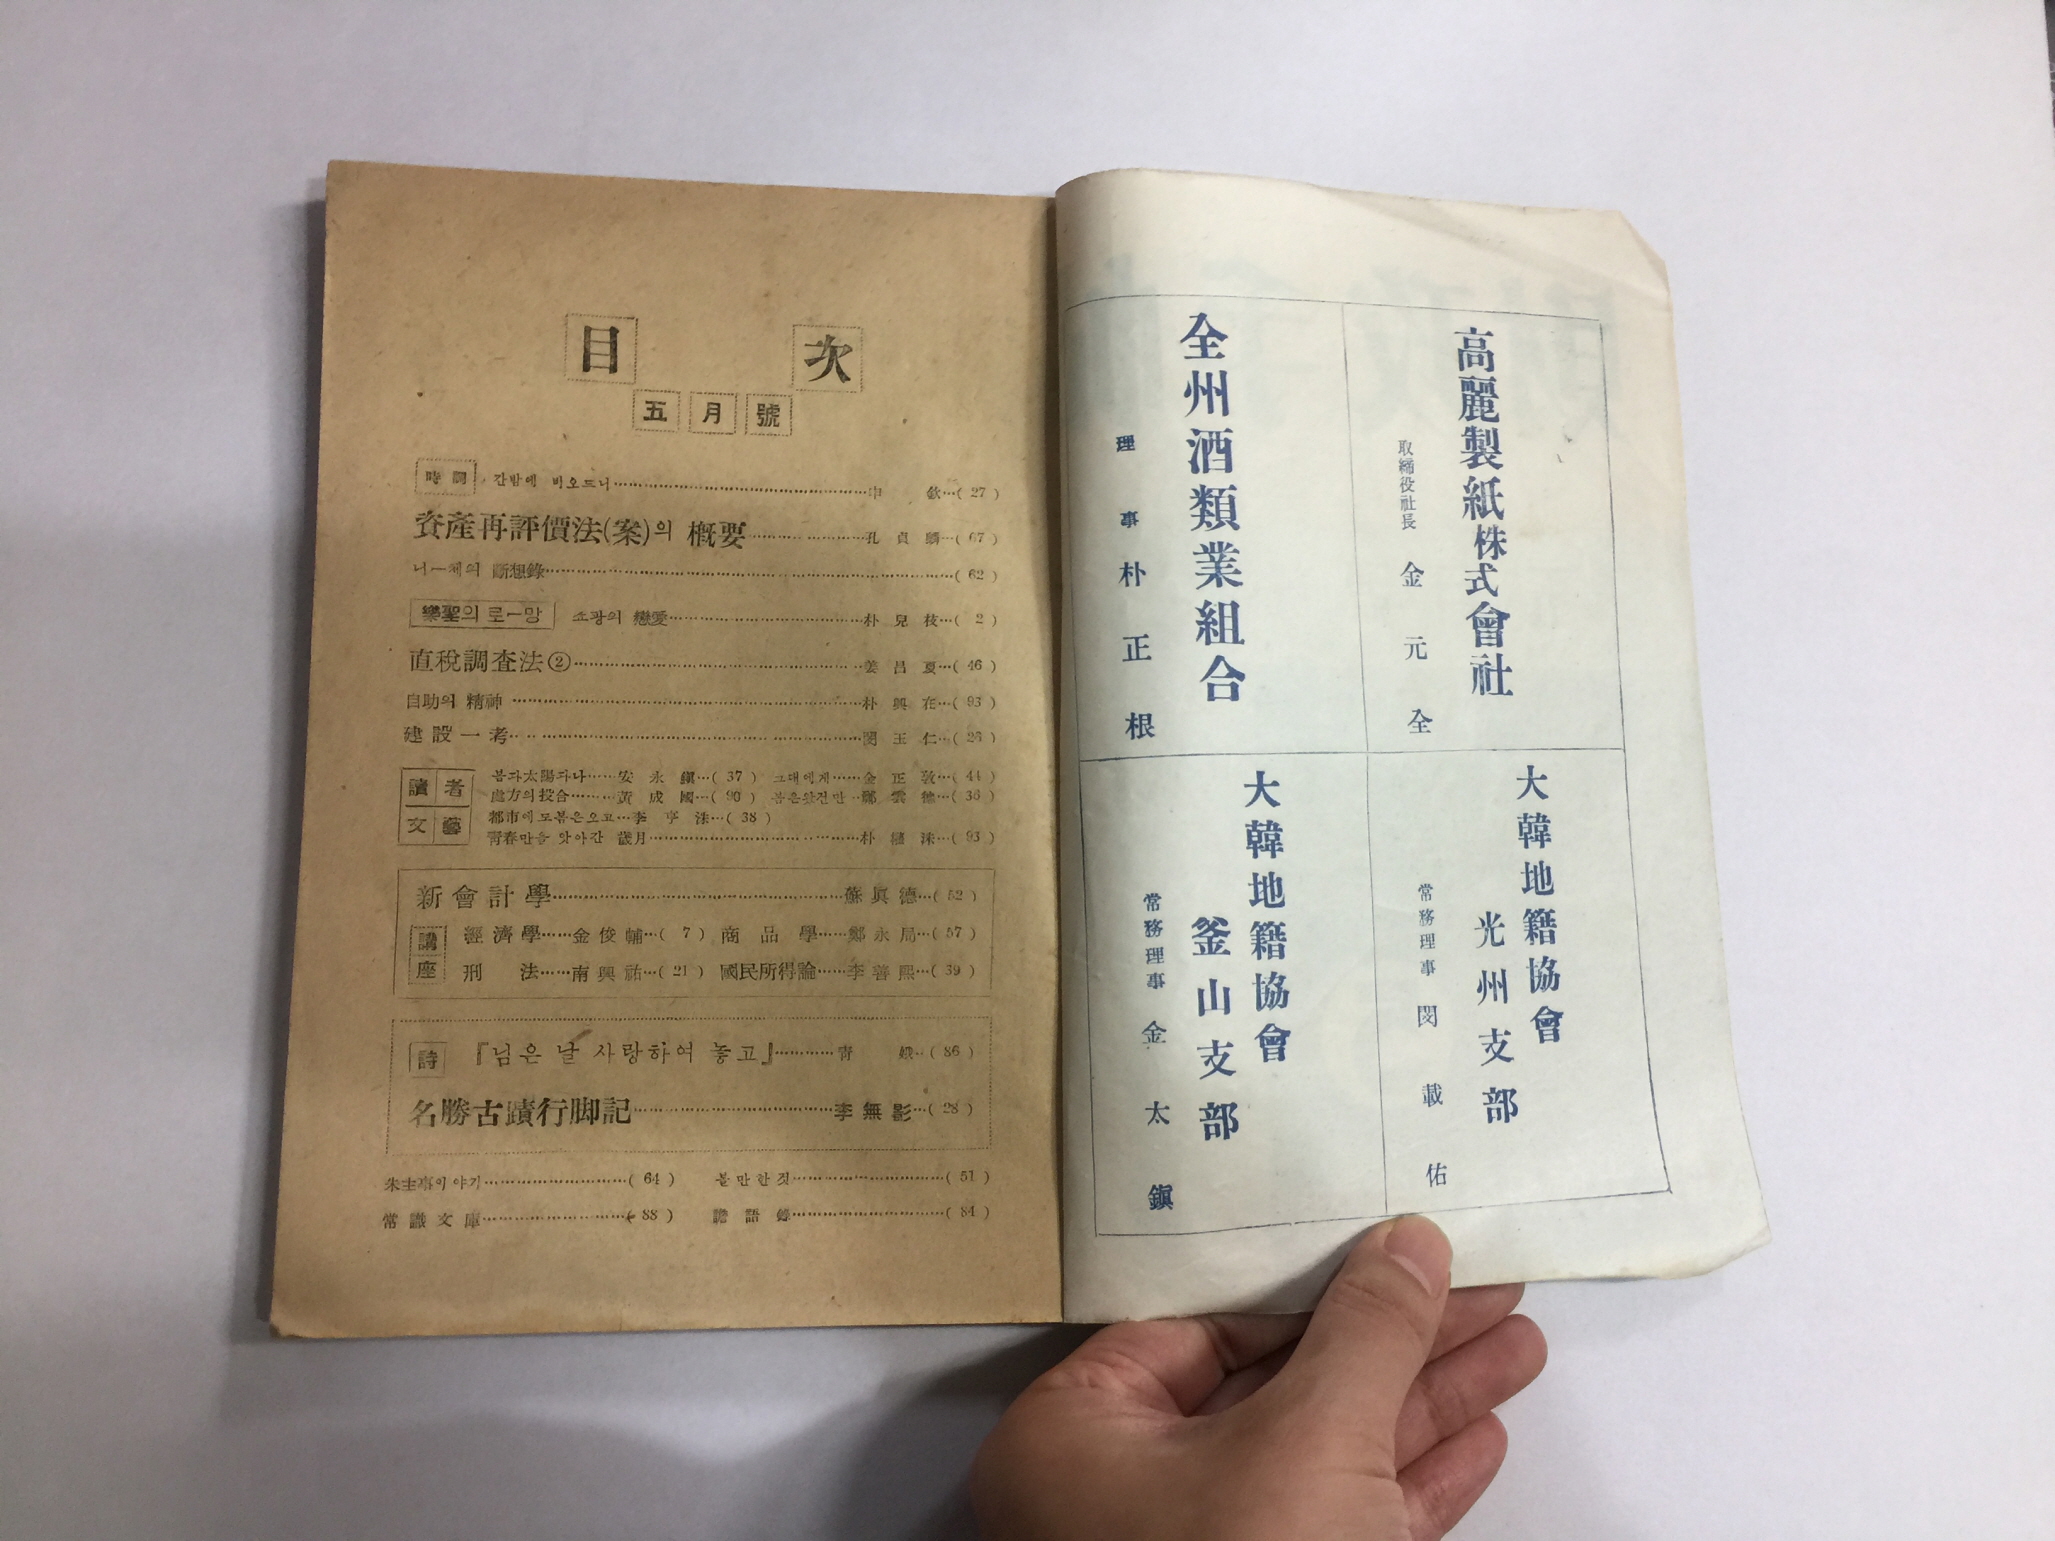 目 次
五 月 號
時 調 간밤에 비오드니 申 欽 ( 27 )
資產再評價法(案)의 槪要 孔 貞 ( 67 )
니―체의 斷想錄 ( 62 )
樂聖의 로―망 쇼팡의 戀愛 朴 兒 枝 ( 2 )
直稅調査法② 姜 昌 夏 ( 46 )
自助의 精神 朴 興 在 ( 93 )
建 設 一 考 閔 王 仁 ( 26 )
讀 者 文 藝
봄다太陽다나 安 永 鎭 ( 37 ) 그대에게 金 正 敦 ( 44 )
處方의投合 黃 成 國 ( 90 ) 봄은왔건만 鄭 雲 ( 36 )
都市에도봄은오고 李 亨 洙 ( 38 )
靑春만을 앗아간 歲月 朴 洙 ( 93 )
新 會 計 學 蘇 眞 德 ( 52 )
講 座
經 濟 學 金 俊 輔 ( 7 ) 商 品 學 鄭 永 局 ( 57 )
刑 法 南 興 祐 ( 21 ) 國民所得論 李 善 熙 ( 39 )
詩 『님은 날 사랑하여 놓고』 靑 娥 ( 86 )
名勝古蹟行脚記 李 無 影 ( 28 )
朱主事이야기 ( 64 ) 볼만한것 ( 51 )
常 識 文 庫 ( 88 ) 譫 語 錄 ( 84 )
高麗製紙株式會社
取締役社長 金 元 全
全州酒類業組合
理 事 朴 正 根
大韓地籍協會
光州支部
常務理事 閔 載 佑
大韓地籍協會
釜山支部
常務理事 金 太 鎭